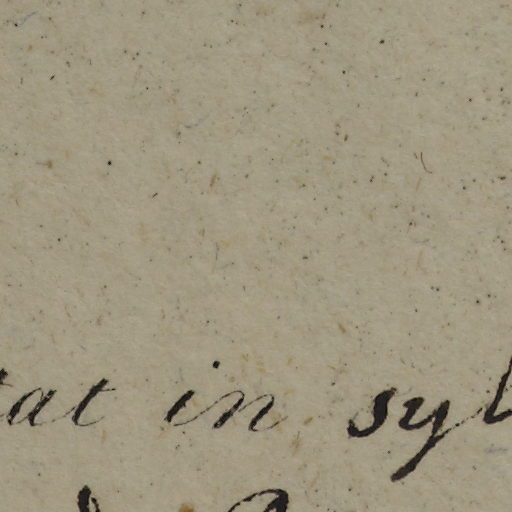 tat in syl